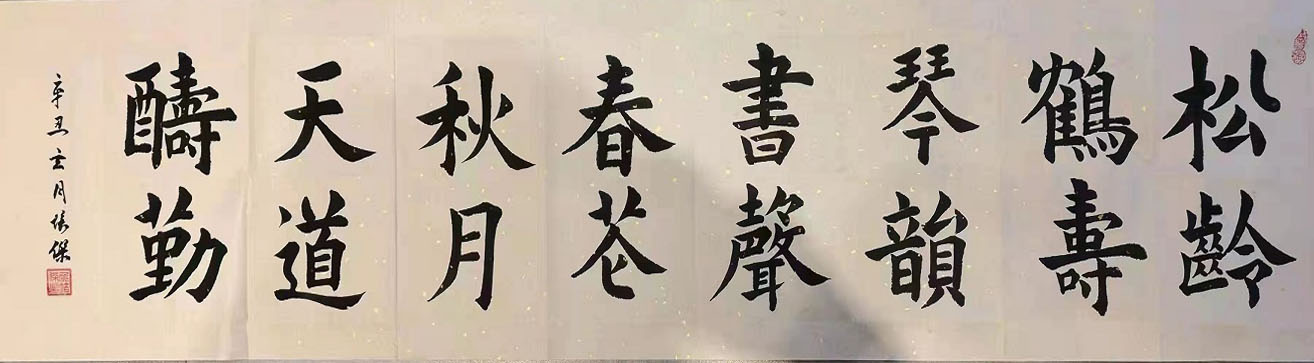 松齡
鶴壽
琴韻
書聲
春花
秋月
天道
醻勤
辛丑玄月張傑